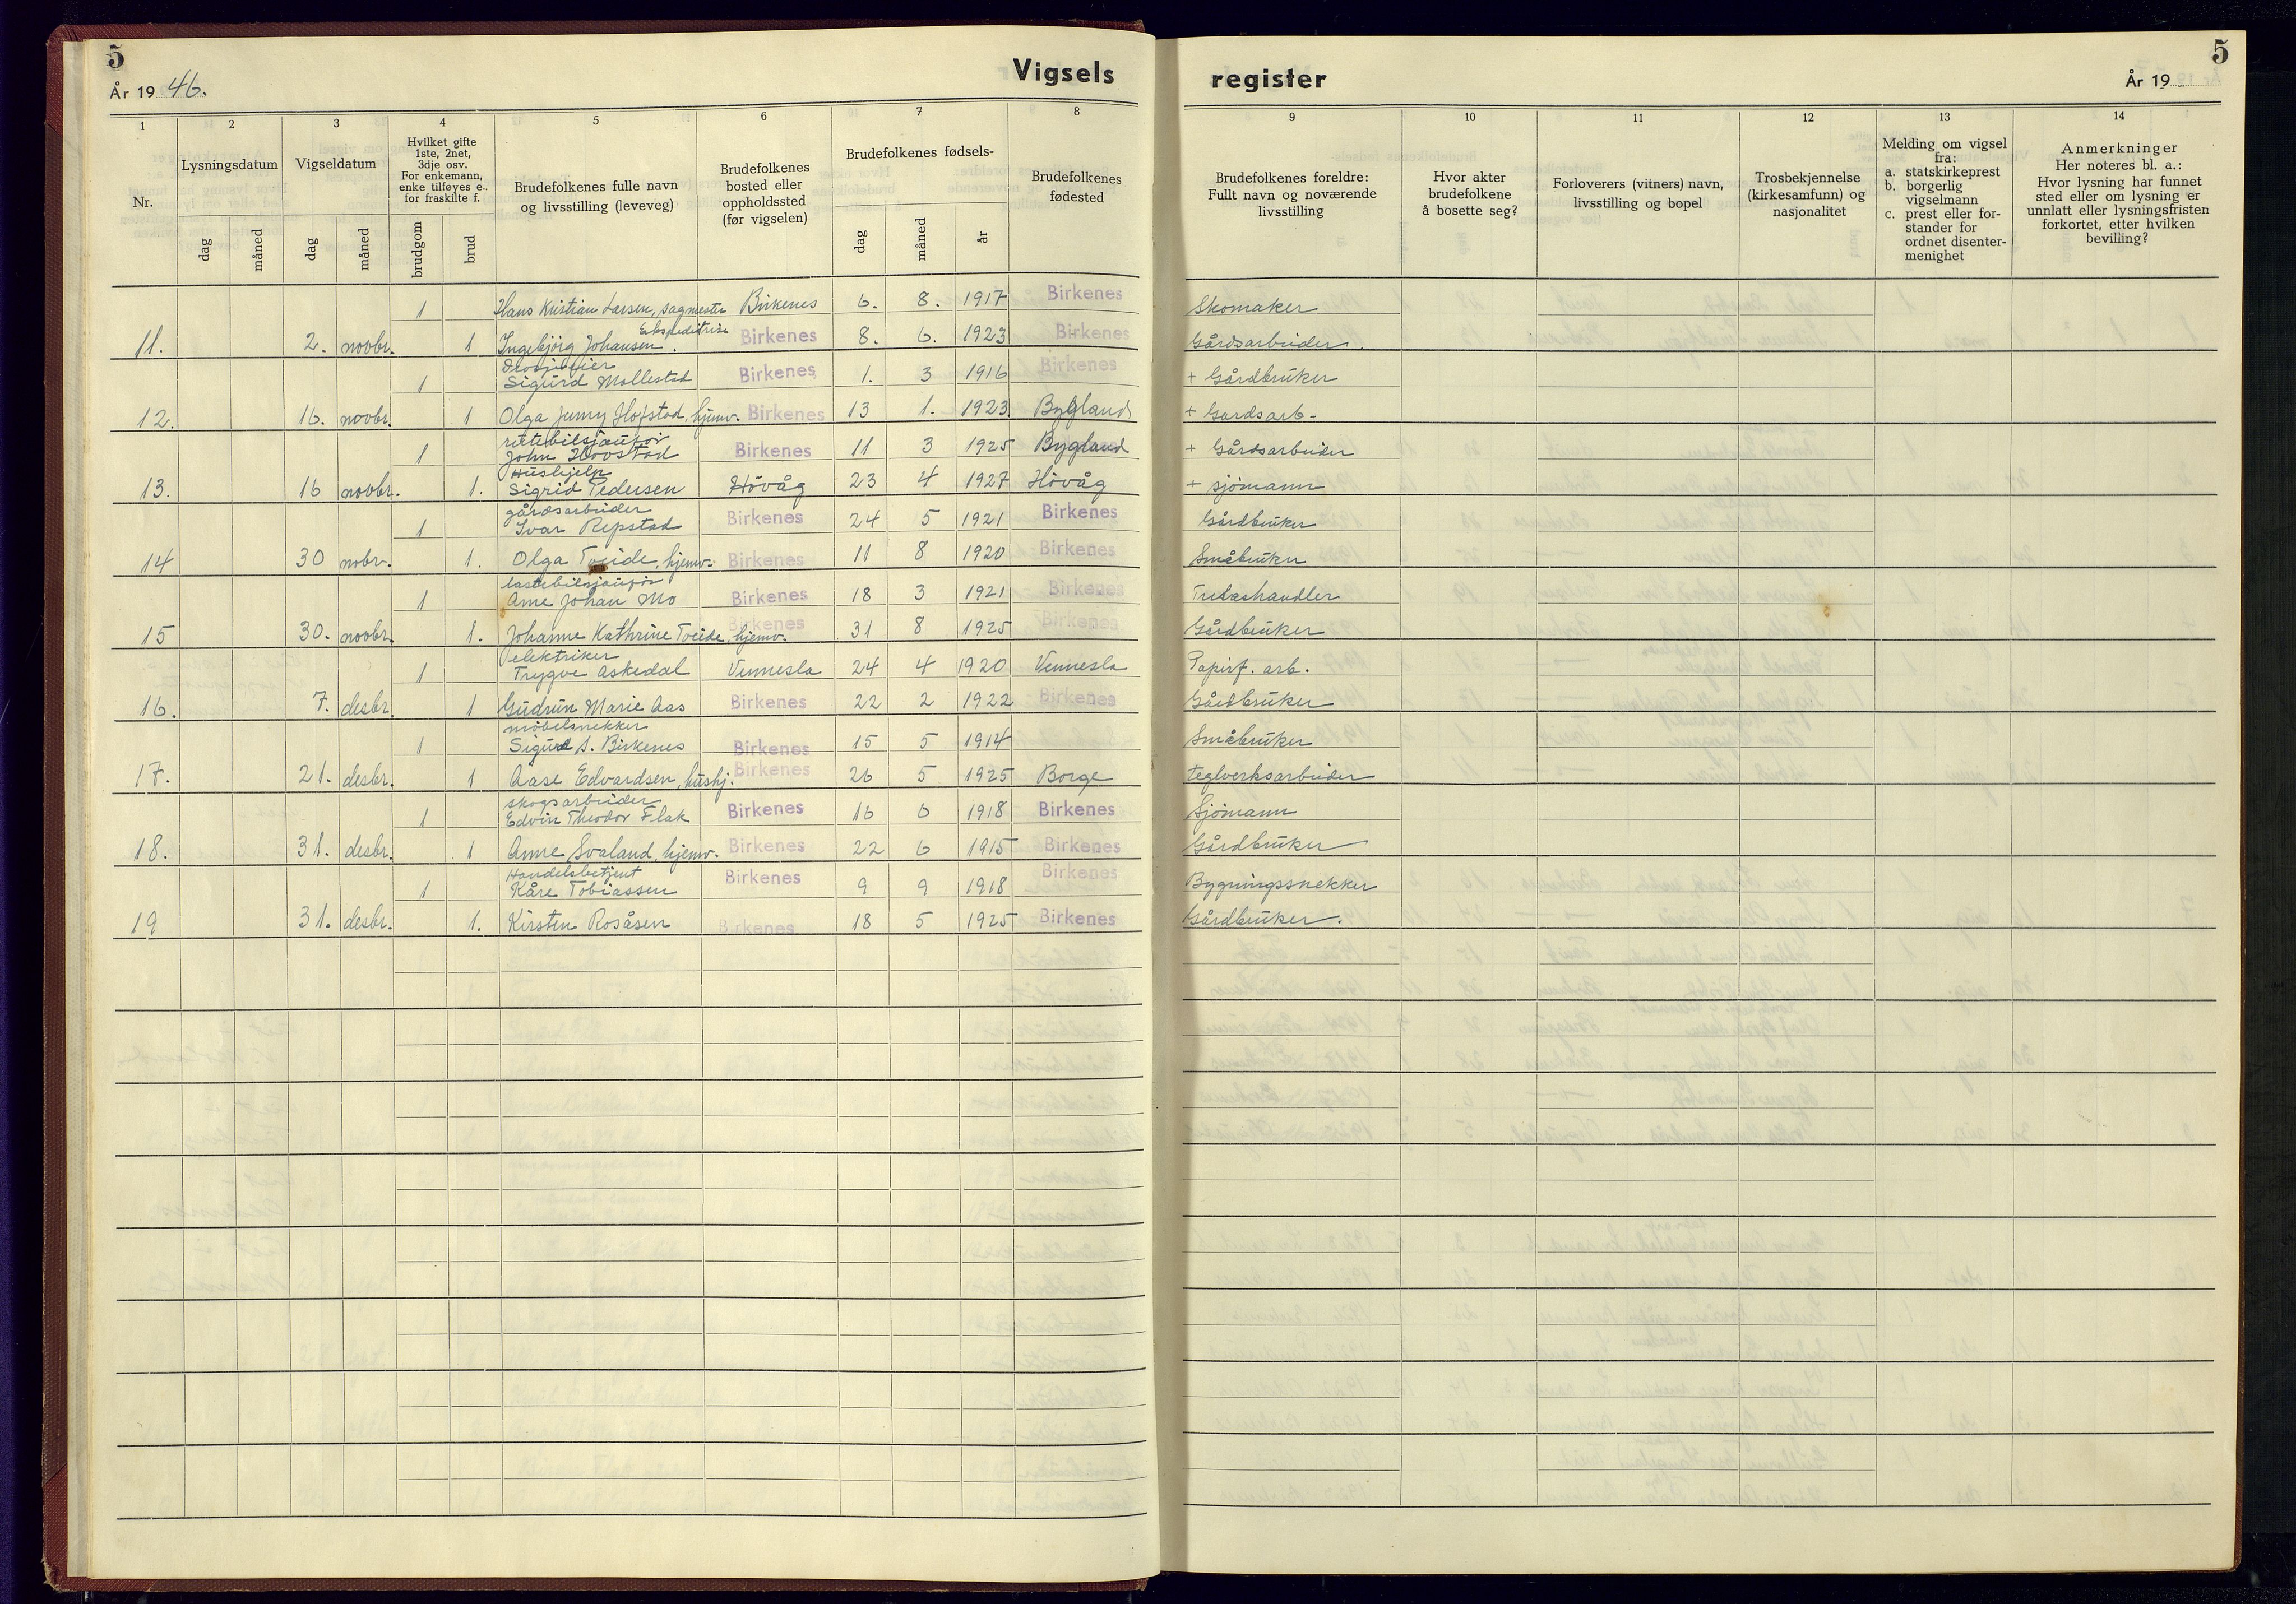 5
År 19 46.
Vigsels
register
År 19
5
1
2
3
4
5
6
7
8
9
10
11
12
13
14
Nr.
Lysningsdatum
dag
måned
Vigseldatum
dag
måned
Hvilket gifte
1ste, 2net,
3dje osv.
For enkemann,
enke tilføyes e..
for fraskilte f.
brudgom
brud
Brudefolkenes fulle navn
og livsstilling (leveveg)
Brudefolkenes
bosted eller
oppholdssted
(før vigselen)
Brudefolkenes fødsels-
dag
måned
år
Brudefolkenes
fødested
Brudefolkenes foreldre:
Fullt navn og noværende
livsstilling
Hvor akter
brudefolkene
å bosette seg?
Forloverers (vitners) navn,
livsstilling og bopel
Trosbekjennelse
(kirkesamfunn) og
nasjonalitet
Melding om vigsel
fra:
a. statskirkeprest
b. borgerlig
vigselmann
c. prest eller for-
stander for
ordnet disenter-
menighet
Anmerkninger
Her noteres bl. a.:
Hvor lysning har funnet
sted eller om lysning er
unnlatt eller lysningsfristen
forkortet, etter hvilken
bevilling?
1 Hans Kristian Larsen, sagmester Birkenes 6. 8. 1917 Birkenes Skomaker
Ekspeditrise
11. 2. novbr. 1 Ingebjörg Johansen. Birkenes 8. 6. 1923 Birkenes Gårdsarbeider.
1 Sigurd Mollestad Birkenes 1. 3 1916 Birkenes + Gårdbruker
12. 16. novbr. 1 Olga Jenny Hofstad, hjemv. Birkenes 13 1. 1923. Bygland + Gardsarb-
rutebilsjauför
1 John Hovstad Birkenes 11 3 1925 Bygland + Gårdsarbeider
Hushjelp
13. 16 novbr. 1. Sigrid Pedersen Hövåg 23 4 1927 Hövåg + sjömann
gårdsarbeider
1 Ivar Repstad Birkenes 24 5 1921 Birkenes Gårdbruker
14 30 nobr. 1. Olga Tveide, hjemv. Birkenes 11 8 1920 Birkenes Småbruker
lastebilsjauför
1 Arne Johan Mo Birkenes 18 3 1921 Birkenes Trelasthandler
15 30. novbr. 1. Johanne Kathrine Tveide, hjemv. Birkenes 31 8 1925 Birkenes Gårdbruker
elektriker
1 Trygve Askedal Vennesla 24 4 1920 Vennesla Papirf. arb.
16. 7. desbr. 1 Gudrun Marie Aas Birkenes 22 2 1922 Birkenes Gårdbruker
möbelsnekker
1 Sigurd S. Birkenes Birkenes 15 5 1914 Småbruker
17. 21. desbr. 1 Aase Edvardsen, hushj. Birkenes 26 5 1925 Borge teglverksarbeider
skogsarbeider
1 Edvin Theodor Flak Birkenes 16 6 1918 Birkenes Sjömann
18. 31. desbr. 1 Anne Svaland, hjemv. Birkenes 22 6 1915 Birkenes Gårdbruker
Handelsbetjent
1 Kåre Tobiassen Birkenes 9 9 1918 Birkenes Bygningssnekker
19 31. desbr. 1. Kirsten Rosåsen Birkenes 18 5 1925 Birkenes Gårdbruker.